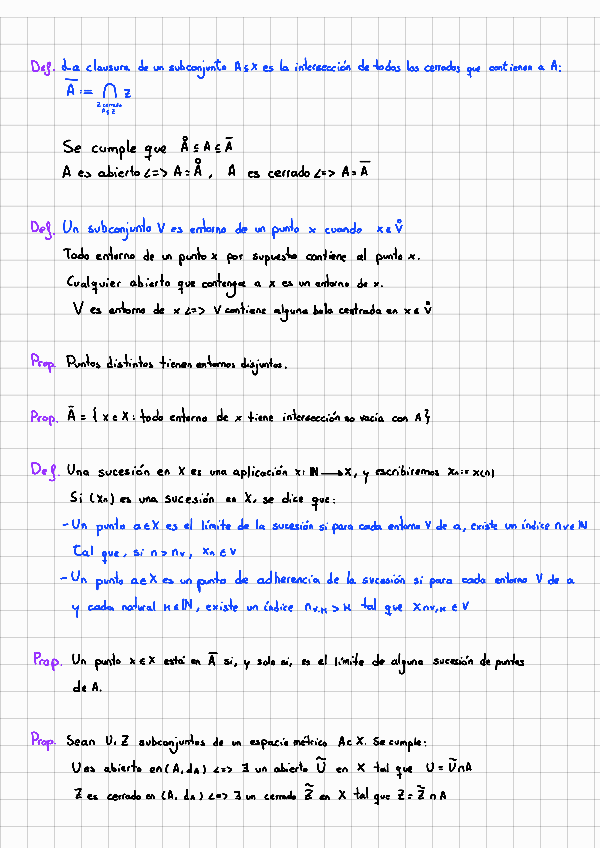 Def. La clausura de un subconjunto A ⊆ X es la intersección de todos los cerrados que contienen a A:
Ā := ⋂ Z
Z cerrado
A ⊆ Z
Se cumple que Å ⊆ A ⊆ Ā
A es abierto <=> A = Å , A es cerrado <=> A = Ā
Def. Un subconjunto V es entorno de un punto x cuando x ∈ V̊
Todo entorno de un punto x por supuesto contiene al punto x.
Cualquier abierto que contenga a x es un entorno de x.
V es entorno de x <=> V contiene alguna bola centrada en x ∈ V̊
Prop. Puntos distintos tienen entornos disjuntos.
Prop. Ā = { x ∈ X : todo entorno de x tiene intersección no vacía con A }
Def. Una sucesión en X es una aplicación x: ℕ → X, y escribiremos xₙ := x(n)
Si (xₙ) es una sucesión en X, se dice que:
- Un punto a ∈ X es el límite de la sucesión si para cada entorno V de a, existe un índice n_V ∈ ℕ
Tal que, si n > n_V, xₙ ∈ V
- Un punto a ∈ X es un punto de adherencia de la sucesión si para cada entorno V de a
y cada natural K ∈ ℕ, existe un índice n_V,K > K tal que x n_V,K ∈ V
Prop. Un punto x ∈ X está en Ā si, y solo si, es el límite de alguna sucesión de puntos
de A.
Prop. Sean U, Z subconjuntos de un espacio métrico A ⊂ X. Se cumple:
U es abierto en (A, d_A) <=> ∃ un abierto Ũ en X tal que U = Ũ ∩ A
Z es cerrado en (A, d_A) <=> ∃ un cerrado Z̃ en X tal que Z = Z̃ ∩ A